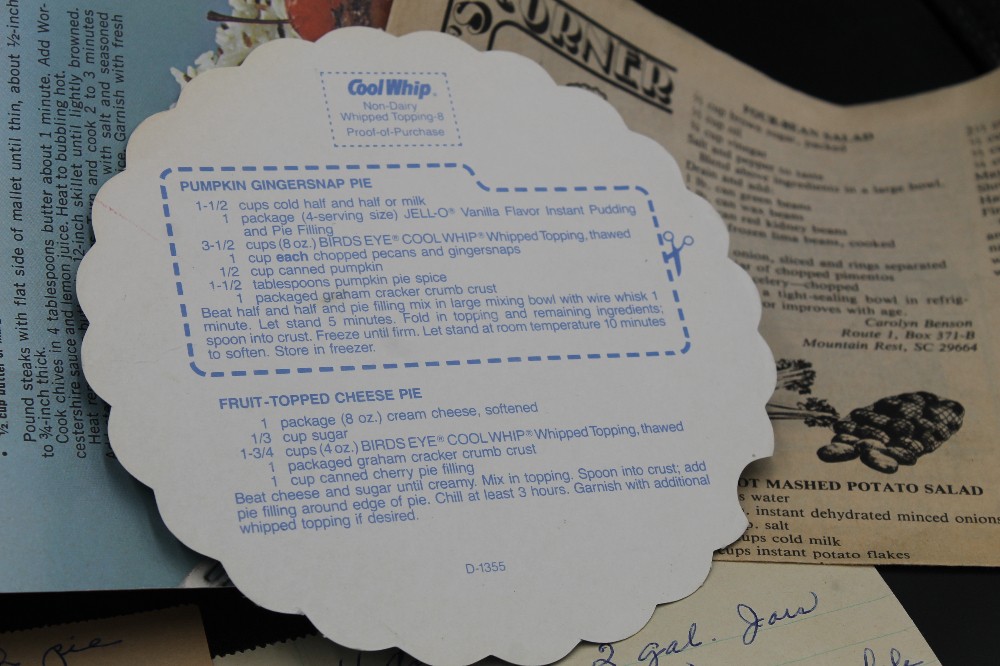 Cool Whip®
Non-Dairy
Whipped Topping-8
Proof-of-Purchase
PUMPKIN GINGERSNAP PIE
1-1/2 cups cold half and half or milk
1 package (4-serving size) JELL-O® Vanilla Flavor Instant Pudding
and Pie Filling
3-1/2 cups (8 oz.) BIRDS EYE® COOL WHIP® Whipped Topping, thawed
1 cup each chopped pecans and gingersnaps
1/2 cup canned pumpkin
1-1/2 tablespoons pumpkin pie spice
1 packaged graham cracker crumb crust
Beat half and half and pie filling mix in large mixing bowl with wire whisk 1
minute. Let stand 5 minutes. Fold in topping and remaining ingredients;
spoon into crust. Freeze until firm. Let stand at room temperature 10 minutes
to soften. Store in freezer.
FRUIT-TOPPED CHEESE PIE
1 package (8 oz.) cream cheese, softened
1/3 cup sugar
1-3/4 cups (4 oz.) BIRDS EYE® COOL WHIP® Whipped Topping, thawed
1 packaged graham cracker crumb crust
1 cup canned cherry pie filling
Beat cheese and sugar until creamy. Mix in topping. Spoon into crust; add
pie filling around edge of pie. Chill at least 3 hours. Garnish with additional
whipped topping if desired.
D-1355
Pound steaks with flat side of mallet until thin, about 1/2-inch
to 3/4-inch thick.
Cook chives in 4 tablespoons butter about 1 minute. Add Wor-
cestershire sauce and lemon juice. Heat to bubbling hot.
12-inch skillet until lightly browned.
and cook 2 to 3 minutes
with salt and seasoned
Garnish with fresh
ORNER
FOUR-BEAN SALAD
cup brown sugar, packed
cup oil
cup vinegar
Salt and pepper to taste
above ingredients in a large bowl.
Drain and add:
green beans
wax beans
red kidney beans
lima beans, cooked
onion, sliced and rings separated
of chopped pimentos
celery—chopped
tight-sealing bowl in refrig-
or improves with age.
Carolyn Benson
Route 1, Box 371-B
Mountain Rest, SC 29664
OT MASHED POTATO SALAD
s water
instant dehydrated minced onions
salt
ups cold milk
cups instant potato flakes
pie
2 gal. Jars